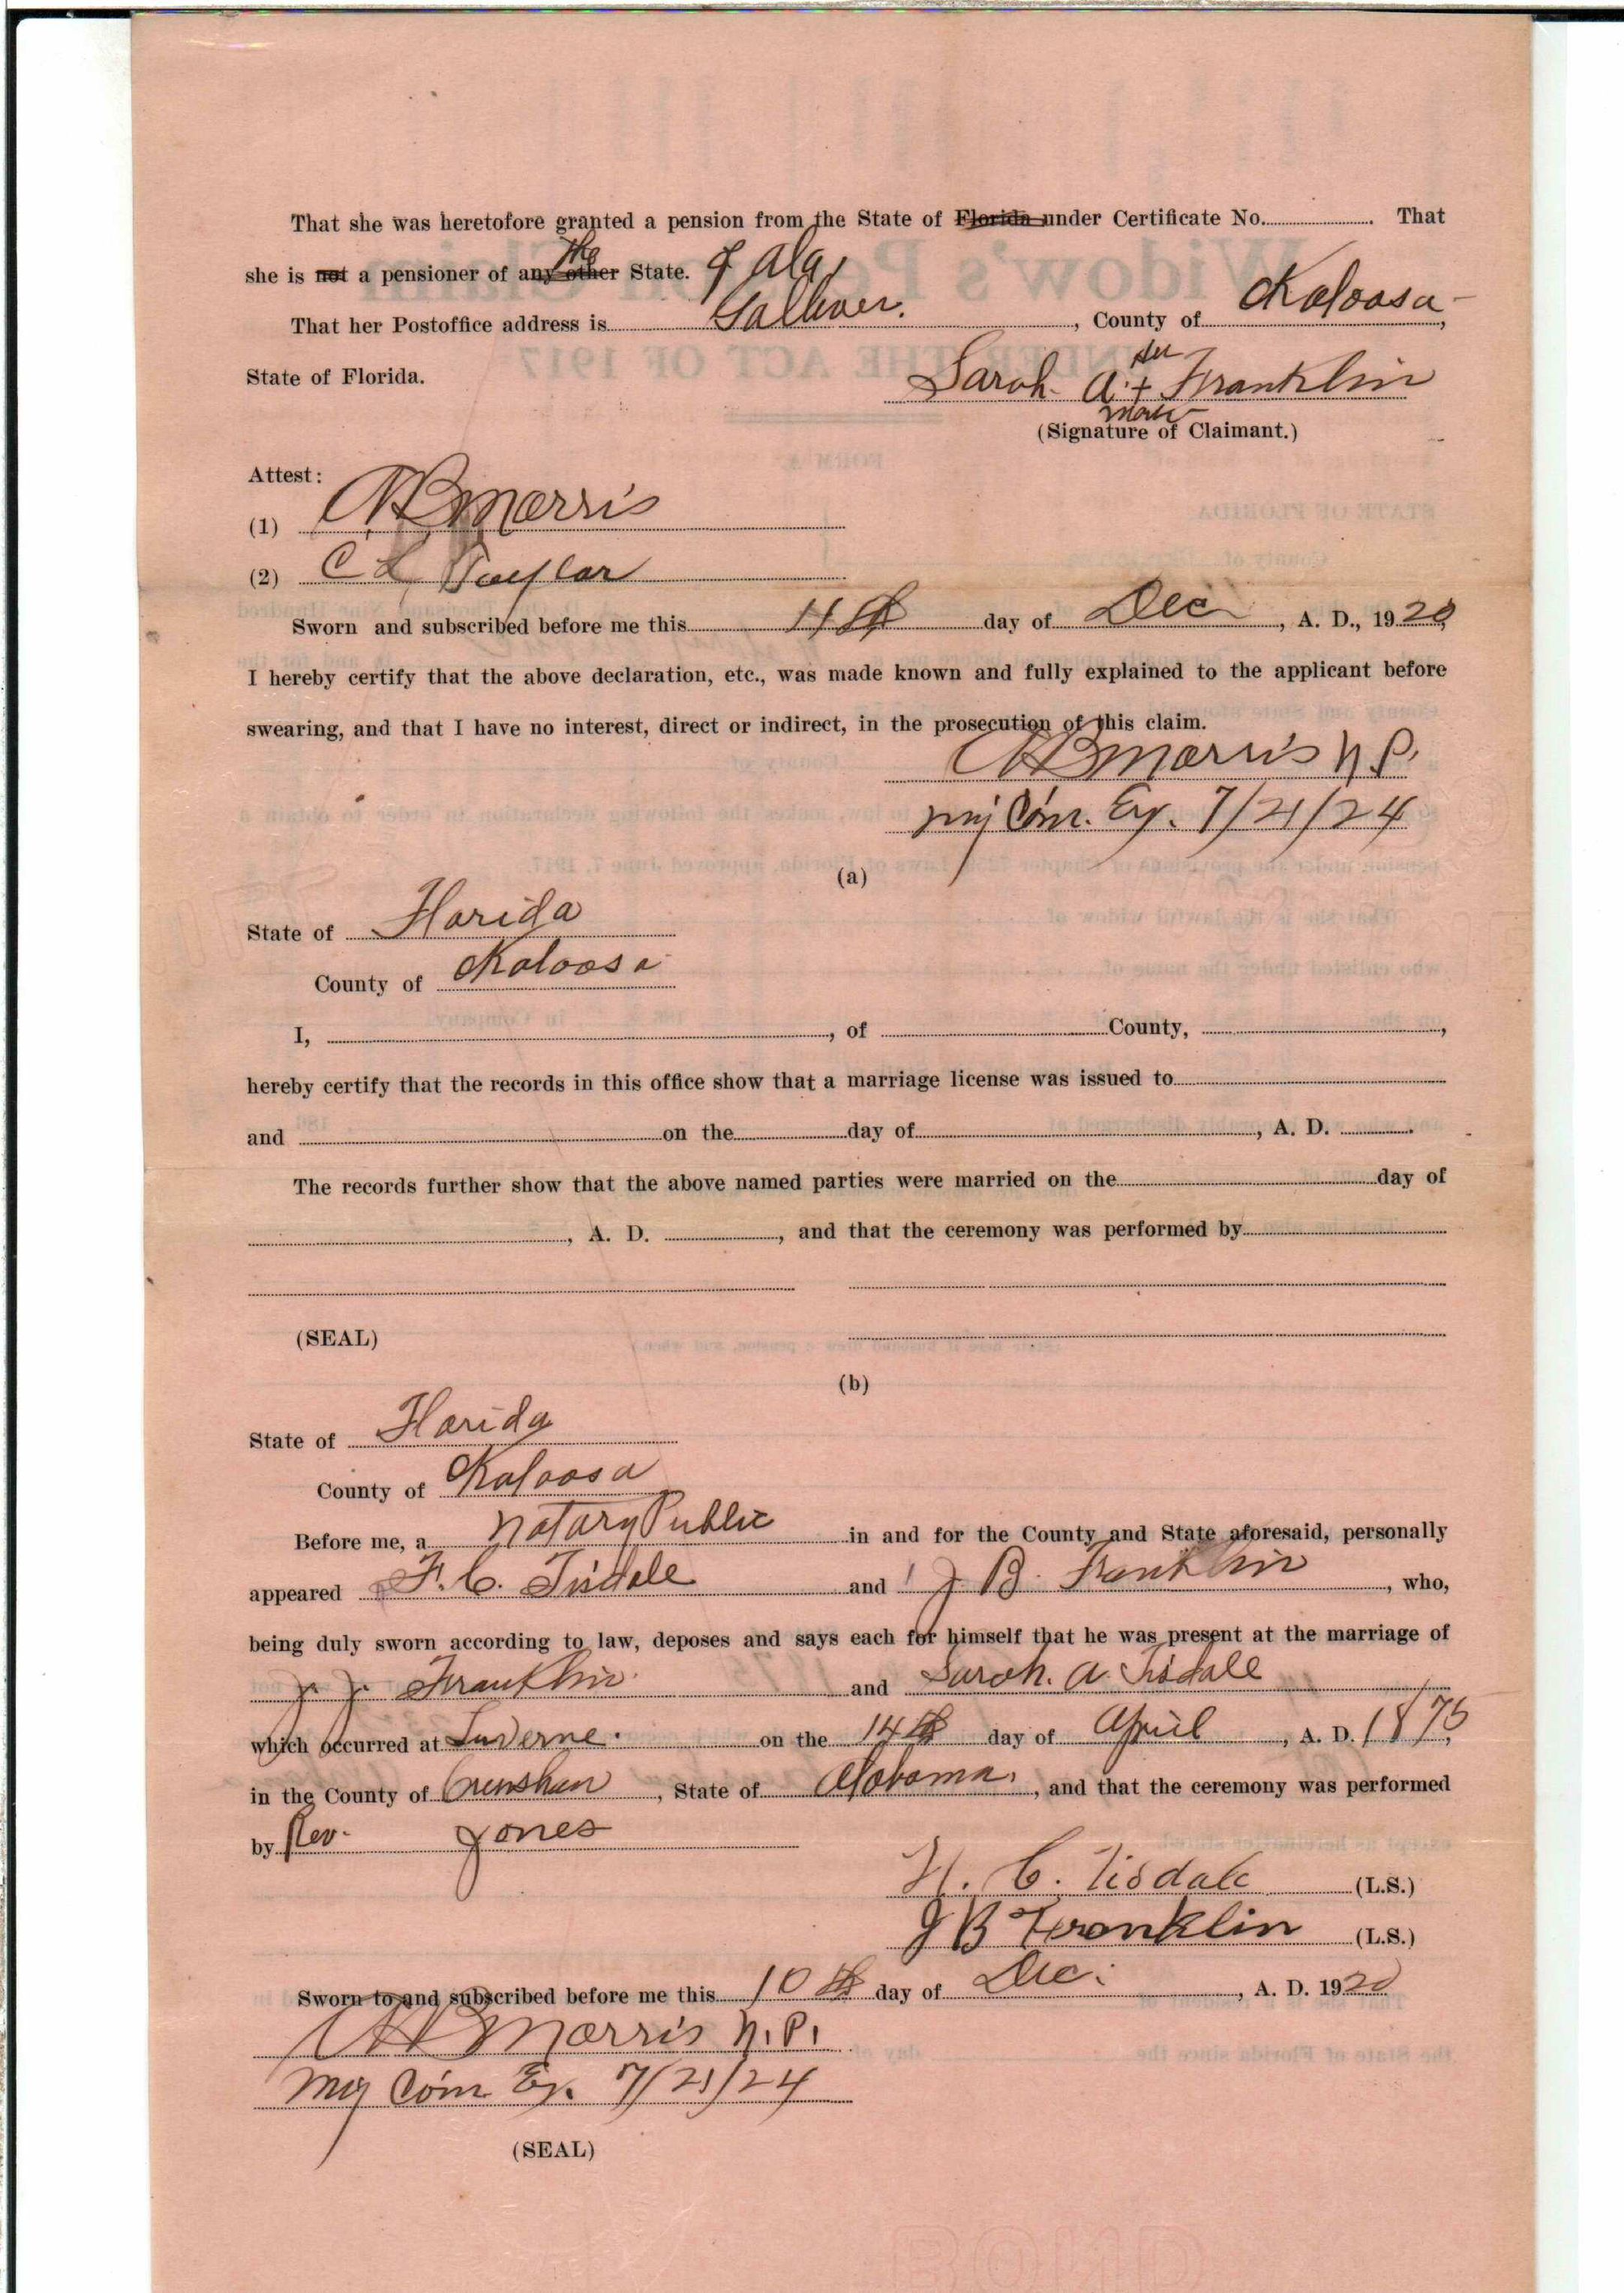 That she was heretofore granted a pension from the State of Florida under Certificate No. ............ That
she is not a pensioner of any other the State. of Ala,
That her Postoffice address is Galliver. , County of Okaloosa ,
State of Florida.
Sarah A. her + mark Franklin
(Signature of Claimant.)
Attest:
(1) Morris
(2) C L Taylor
Sworn and subscribed before me this 11th day of Dec , A. D., 1920
I hereby certify that the above declaration, etc., was made known and fully explained to the applicant before
swearing, and that I have no interest, direct or indirect, in the prosecution of this claim.
Morris N P.
my Com. Ex. 7/21/24
(a)
State of Florida
County of Okaloosa
I, ............, of ............ County, ............,
hereby certify that the records in this office show that a marriage license was issued to ............
and ............ on the ............ day of ............, A. D. ............
The records further show that the above named parties were married on the ............ day of
............, A. D. ............, and that the ceremony was performed by ............
(SEAL)
(b)
State of Florida
County of Okaloosa
Before me, a Notary Public in and for the County and State aforesaid, personally
appeared C. Tisdale and J B. Franklin , who,
being duly sworn according to law, deposes and says each for himself that he was present at the marriage of
J. J. Franklin and Sarah. A. Tisdale
which occurred at Luverne. on the 14th day of April , A. D. 1875,
in the County of Crenshaw , State of Alabama, , and that the ceremony was performed
by Rev. Jones
H. C. Tisdale (L.S.)
J B Franklin (L.S.)
Sworn to and subscribed before me this 10th day of Dec. , A. D. 1920
Morris N.P.
My Com Ex. 7/21/24
(SEAL)